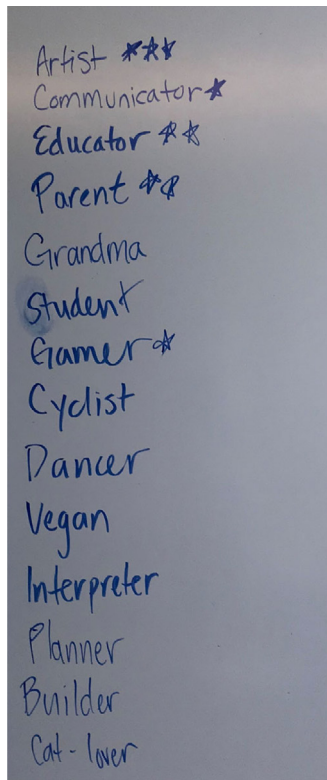 Artist ☆☆☆
Communicator ☆
Educator ☆☆
Parent ☆☆
Grandma
Student
Gamer ☆
Cyclist
Dancer
Vegan
Interpreter
Planner
Builder
Cat-lover